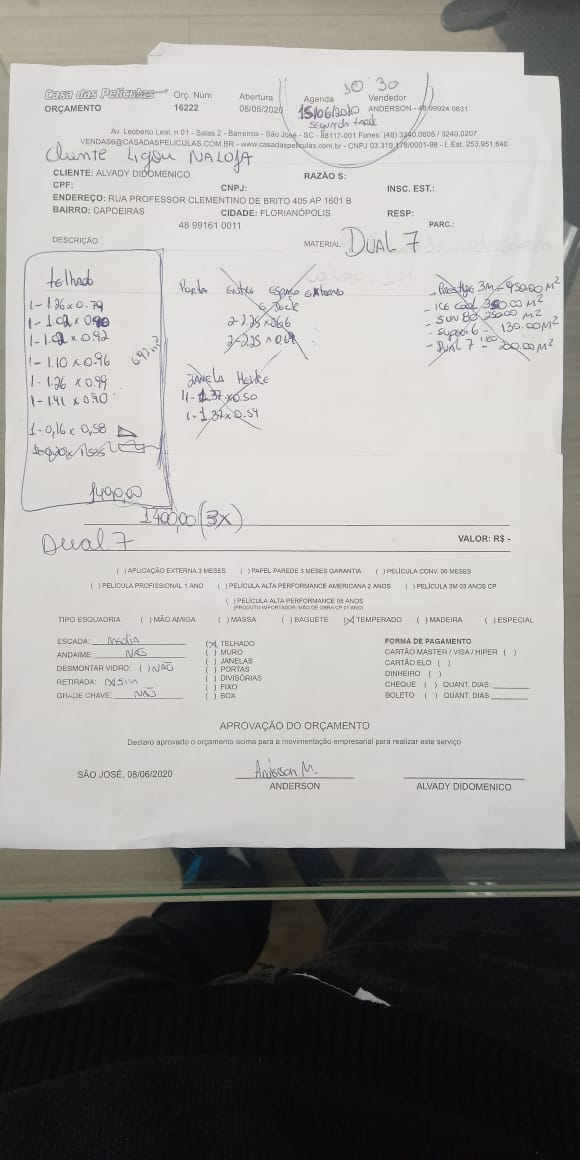 10:30
Casa das Películas Orç. Núm Abertura Agenda Vendedor
ORÇAMENTO 16222 08/06/2020 15/06/2020 ANDERSON - 48 99924 0831
SEGUNDA
Av. Leoberto Leal, n 01 - Salas 2 - Barreiros - São José - SC - 88117-001 Fones: (48) 3240.0605 / 3240.0207
VENDAS6@CASADASPELICULAS.COM.BR - www.casadaspeliculas.com.br - CNPJ 03.319.178/0001-98 - I. Est. 253.951.640
Cliente Ligou NA LOJA
CLIENTE: ALVADY DIDOMENICO RAZÃO S:
CPF: CNPJ: INSC. EST.:
ENDEREÇO: RUA PROFESSOR CLEMENTINO DE BRITO 405 AP 1601 B
BAIRRO: CAPOEIRAS CIDADE: FLORIANÓPOLIS RESP:
48 99161 0011 PARC.:
DESCRIÇÃO MATERIAL: DUAL 7
telhado
1-1.26 x 0.79
1-1.02 x 0.90
1-1.02 x 0.92
1-1.10 x 0.96
1-1.26 x 0.99
1-1.41 x 0.90
6,92 m²
1-0,16 x 0,58
1400,00
Porta Entre Espaço Externo
E Deck
2-2.25 x 0.66
2-2.25 x 0.69
JANELA
4-1.37 x 0.50
1-1.37 x 0.54
- Prestige 3M - 950.00 M²
- ICE COOL 350.00 M²
- SUN 80 250.00 M²
- Super 6 - 130.00 M²
- DUAL 7 - 200.00 M²
1400,00 (3X)
Dual 7 VALOR: R$ -
( ) APLICAÇÃO EXTERNA 3 MESES ( ) PAPEL PAREDE 3 MESES GARANTIA ( ) PELÍCULA CONV. 06 MESES
( ) PELÍCULA PROFISSIONAL 1 ANO ( ) PELÍCULA ALTA PERFORMANCE AMERICANA 2 ANOS ( ) PELÍCULA 3M 03 ANOS CP
( ) PELÍCULA ALTA PERFORMANCE 05 ANOS
(PRODUTO IMPORTADOR, MÃO DE OBRA CP 01 ANO)
TIPO ESQUADRIA ( ) MÃO AMIGA ( ) MASSA ( ) BAGUETE (X) TEMPERADO ( ) MADEIRA ( ) ESPECIAL
ESCADA: media
ANDAIME: NÃO
DESMONTAR VIDRO: ( ) NÃO
RETIRADA: (X) SIM
GRADE CHAVE: NÃO
(X) TELHADO
( ) MURO
( ) JANELAS
( ) PORTAS
( ) DIVISÓRIAS
( ) FIXO
( ) BOX
FORMA DE PAGAMENTO
CARTÃO MASTER / VISA / HIPER ( )
CARTÃO ELO ( )
DINHEIRO ( )
CHEQUE ( ) QUANT. DIAS:
BOLETO ( ) QUANT. DIAS
APROVAÇÃO DO ORÇAMENTO
Declaro aprovado o orçamento acima para a movimentação empresarial para realizar este serviço
SÃO JOSÉ, 08/06/2020 Anderson M.
ANDERSON ALVADY DIDOMENICO